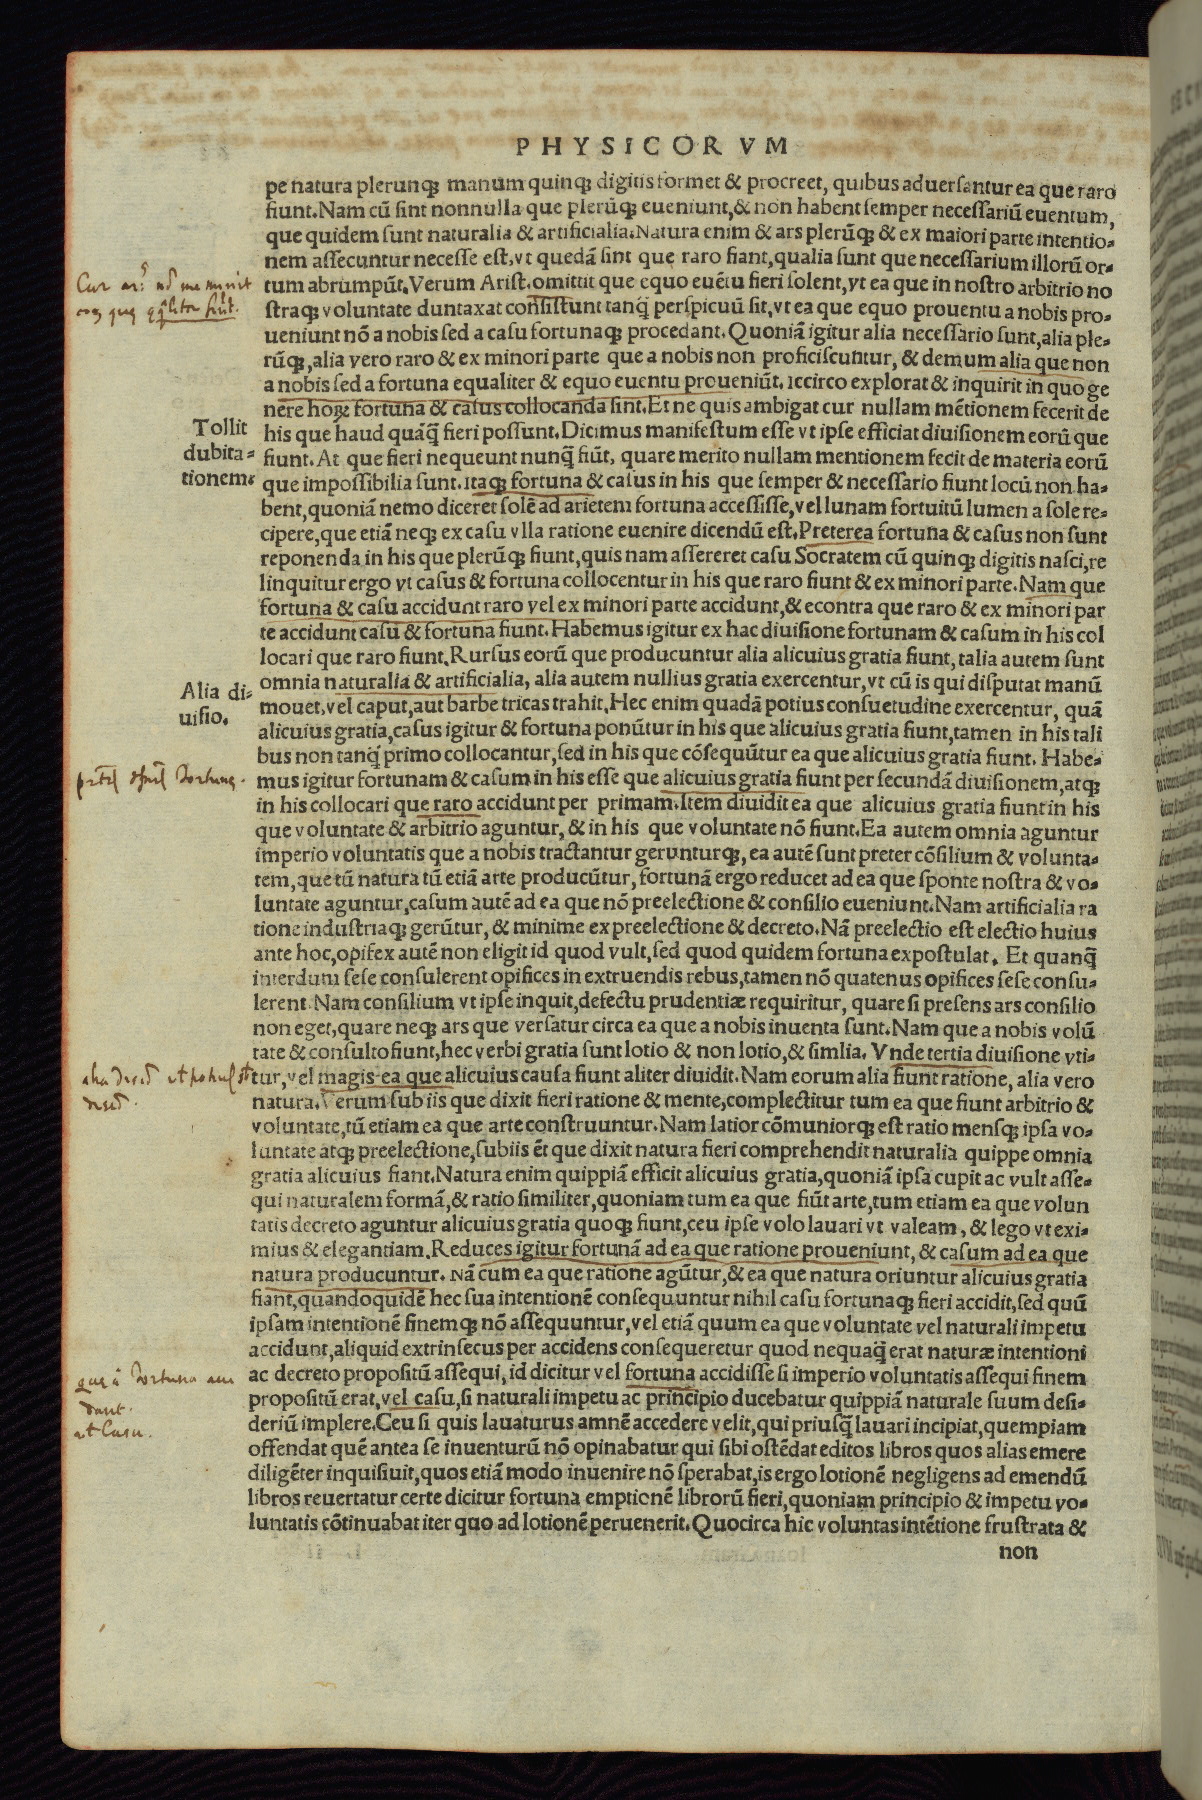 PHYSICORVM
pe natura plerunqꝫ manum quinqꝫ digitis formet & procreet, quibus aduersantur ea que raro
fiunt.Nam cū sint nonnulla que plerūqꝫ eueniunt,& non habent semper necessariū euentum,
que quidem sunt naturalia & artificialia.Natura enim & ars plerūqꝫ & ex maiori parte intentio-
nem assecuntur necesse est,vt quedā sint que raro fiant,qualia sunt que necessarium illorū or-
tum abrumpūt.Verum Arist.omittit que equo euētu fieri solent,vt ea que in nostro arbitrio no
straqꝫ voluntate duntaxat consistunt tanq̄ perspicuū sit,vt ea que equo prouentu a nobis pro-
ueniunt nō a nobis sed a casu fortunaqꝫ procedant.Quoniā igitur alia necessario sunt,alia ple-
rūqꝫ,alia vero raro & ex minori parte que a nobis non proficiscuntur, & demum alia que non
a nobis sed a fortuna equaliter & equo euentu proueniūt.iccirco explorat & inquirit in quo ge
nere hoꝝ fortuna & casus collocanda sint.Et ne quis ambigat cur nullam mētionem fecerit de
Tollit
dubita-
tionem.
his que haud quāq̄ fieri possunt.Dicimus manifestum esse vt ipse efficiat diuisionem eorū que
fiunt.At que fieri nequeunt nunq̄ fiūt, quare merito nullam mentionem fecit de materia eorū
que impossibilia sunt.itaqꝫ fortuna & casus in his que semper & necessario fiunt locū non ha-
bent,quoniā nemo diceret solē ad arietem fortuna accessisse,vel lunam fortuitū lumen a sole re-
cipere,que etiā neqꝫ ex casu vlla ratione euenire dicendū est.Preterea fortuna & casus non sunt
reponenda in his que plerūqꝫ fiunt,quis nam assereret casu Socratem cū quinqꝫ digitis nasci,re
linquitur ergo vt casus & fortuna collocentur in his que raro fiunt & ex minori parte.Nam que
fortuna & casu accidunt raro vel ex minori parte accidunt,& econtra que raro & ex minori par
te accidunt casu & fortuna fiunt.Habemus igitur ex hac diuisione fortunam & casum in his col
locari que raro fiunt.Rursus eorū que producuntur alia alicuius gratia fiunt,talia autem sunt
Alia di-
uisio.
omnia naturalia & artificialia, alia autem nullius gratia exercentur,vt cū is qui disputat manū
mouet,vel caput,aut barbe tricas trahit.Hec enim quadā potius consuetudine exercentur, quā
alicuius gratia,casus igitur & fortuna ponūtur in his que alicuius gratia fiunt,tamen in his tali
bus non tanq̄ primo collocantur,sed in his que cōsequūtur ea que alicuius gratia fiunt. Habe-
mus igitur fortunam & casum in his esse que alicuius gratia fiunt per secundā diuisionem,atqꝫ
in his collocari que raro accidunt per primam.Item diuidit ea que alicuius gratia fiunt in his
que voluntate & arbitrio aguntur, & in his que voluntate nō fiunt.Ea autem omnia aguntur
imperio voluntatis que a nobis tractantur gerunturqꝫ, ea autē sunt preter cōsilium & volunta-
tem, que tū natura tū etiā arte producūtur, fortunā ergo reducet ad ea que sponte nostra & vo-
luntate aguntur,casum autē ad ea que nō preelectione & consilio eueniunt.Nam artificialia ra
tione industriaqꝫ gerūtur, & minime ex preelectione & decreto.Nā preelectio est electio huius
ante hoc,opifex autē non eligit id quod vult,sed quod quidem fortuna expostulat. Et quanq̄
interdum sese consulerent opifices in extruendis rebus,tamen nō quatenus opifices sese consu-
lerent.Nam consilium vt ipse inquit,defectu prudentiæ requiritur, quare si presens ars consilio
non eget,quare neqꝫ ars que versatur circa ea que a nobis inuenta sunt.Nam que a nobis volū
tate & consulto fiunt,hec verbi gratia sunt lotio & non lotio,& simlia. Vnde tertia diuisione vti-
tur,vel magis ea que alicuius causa fiunt aliter diuidit.Nam eorum alia fiunt ratione, alia vero
natura.Verum sub iis que dixit fieri ratione & mente,complectitur tum ea que fiunt arbitrio &
voluntate,tū etiam ea que arte construuntur.Nam latior cōmuniorqꝫ est ratio mensqꝫ ipsa vo-
luntate atqꝫ preelectione,sub iis ēt que dixit natura fieri comprehendit naturalia quippe omnia
gratia alicuius fiant.Natura enim quippiā efficit alicuius gratia,quoniā ipsa cupit ac vult asse-
qui naturalem formā,& ratio similiter,quoniam tum ea que fiūt arte,tum etiam ea que volun
tatis decreto aguntur alicuius gratia quoqꝫ fiunt,ceu ipse volo lauari vt valeam, & lego vt exi-
mius & elegantiam.Reduces igitur fortunā ad ea que ratione proueniunt, & casum ad ea que
natura producuntur. Nā cum ea que ratione agūtur,& ea que natura oriuntur alicuius gratia
fiant,quandoquidē hec sua intentionē consequuntur nihil casu fortunaqꝫ fieri accidit,sed quū
ipsam intentionē finemqꝫ nō assequuntur,vel etiā quum ea que voluntate vel naturali impetu
accidunt,aliquid extrinsecus per accidens consequeretur quod nequaq̄ erat naturæ intentioni
ac decreto propositū assequi, id dicitur vel fortuna accidisse si imperio voluntatis assequi finem
propositū erat,vel casu,si naturali impetu ac principio ducebatur quippiā naturale suum desi-
deriū implere.Ceu si quis lauaturus amnē accedere velit,qui priusq̄ lauari incipiat,quempiam
offendat quē antea se inuenturū nō opinabatur qui sibi ostēdat editos libros quos alias emere
diligēter inquisiuit,quos etiā modo inuenire nō sperabat,is ergo lotionē negligens ad emendū
libros reuertatur certe dicitur fortuna emptionē librorū fieri,quoniam principio & impetu vo-
luntatis cōtinuabat iter quo ad lotionē peruenerit.Quocirca hic voluntas intētione frustrata &
non